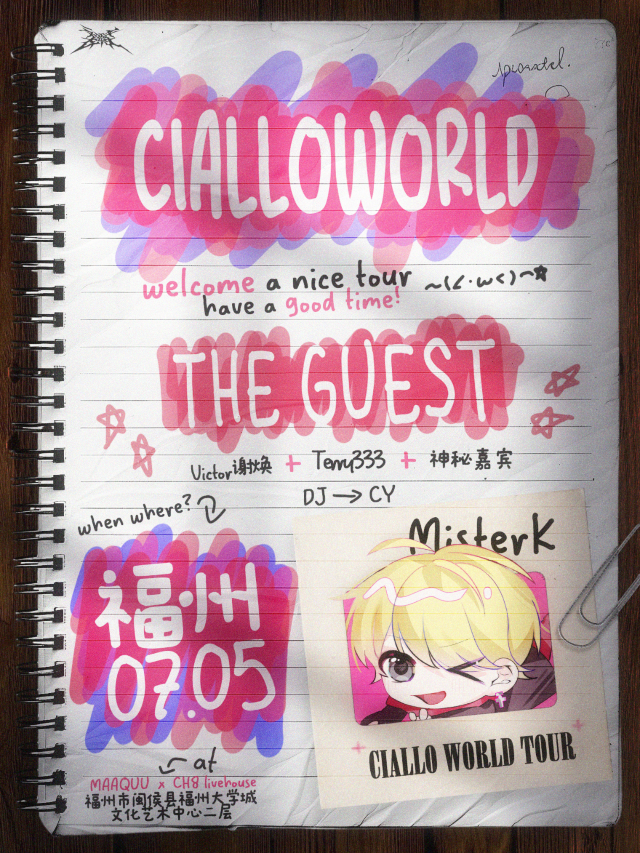 CIALLOWORLD
welcome a nice tour ~(∠·ω<)⌒★
have a good time!
THE GUEST
Victor谢焕 + Terry333 + 神秘嘉宾
DJ → CY
when where?
福州
07.05
at
MAAQUU x CH8 livehouse
福州市闽侯县福州大学城
文化艺术中心二层
MisterK
CIALLO WORLD TOUR